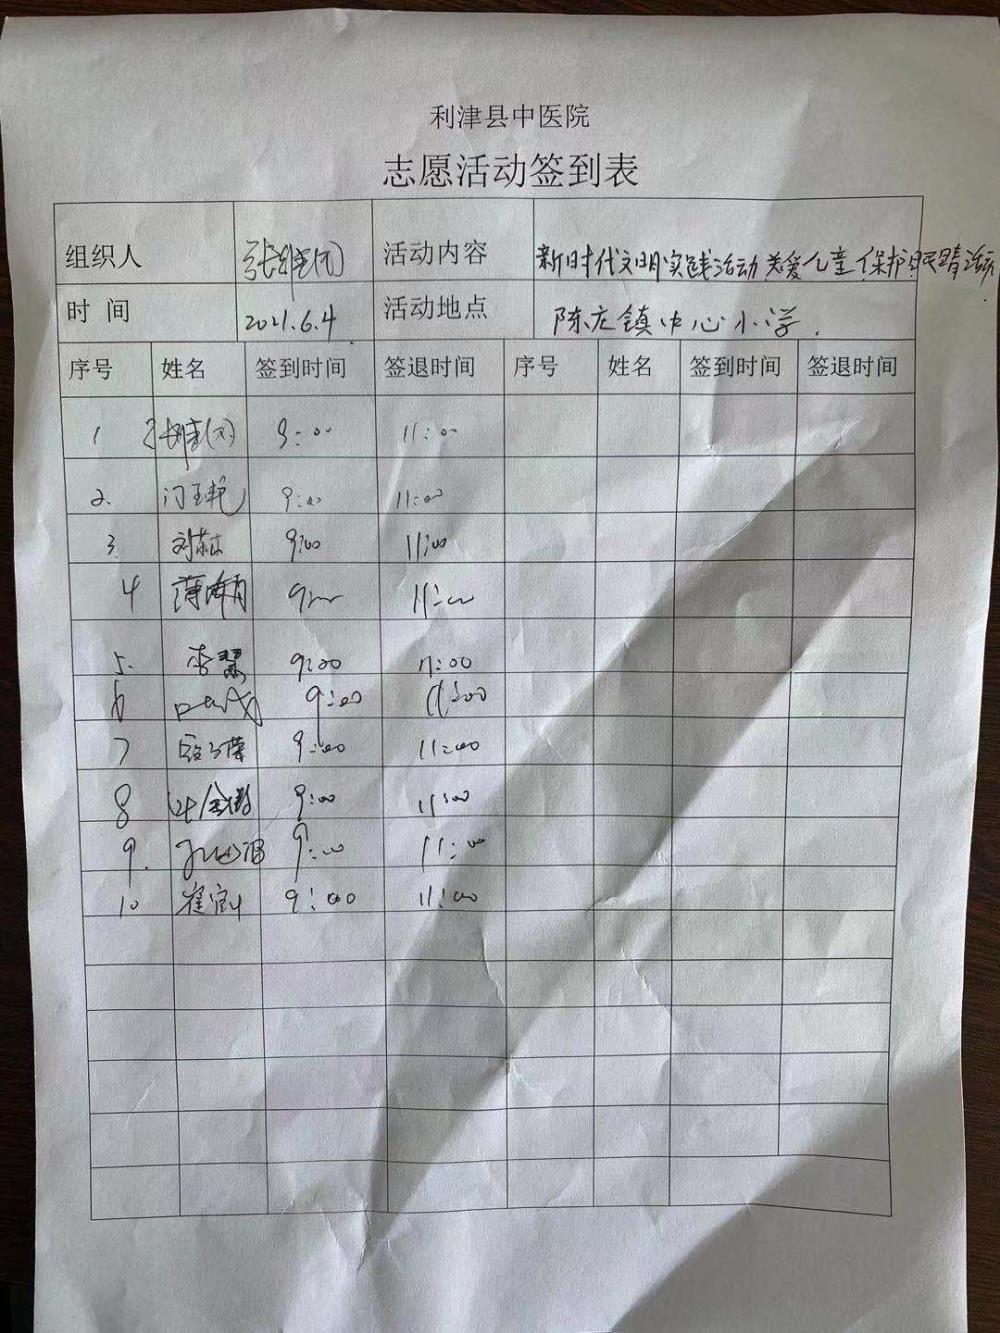 利津县中医院
志愿活动签到表
组织人 活动内容 新时代文明实践活动关爱儿童保护眼睛活动
时 间 2021.6.4 活动地点 陈庄镇中心小学.
序号 姓名 签到时间 签退时间 序号 姓名 签到时间 签退时间
1 9:00 11:00
2. 9:00 11:00
3. 9:00 11:00
4 9:00 11:00
5. 李慧 9:00 11:00
6 9:00 11:00
7 9:00 11:00
8 9:00 11:00
9. 9:00 11:00
10 9:00 11:00